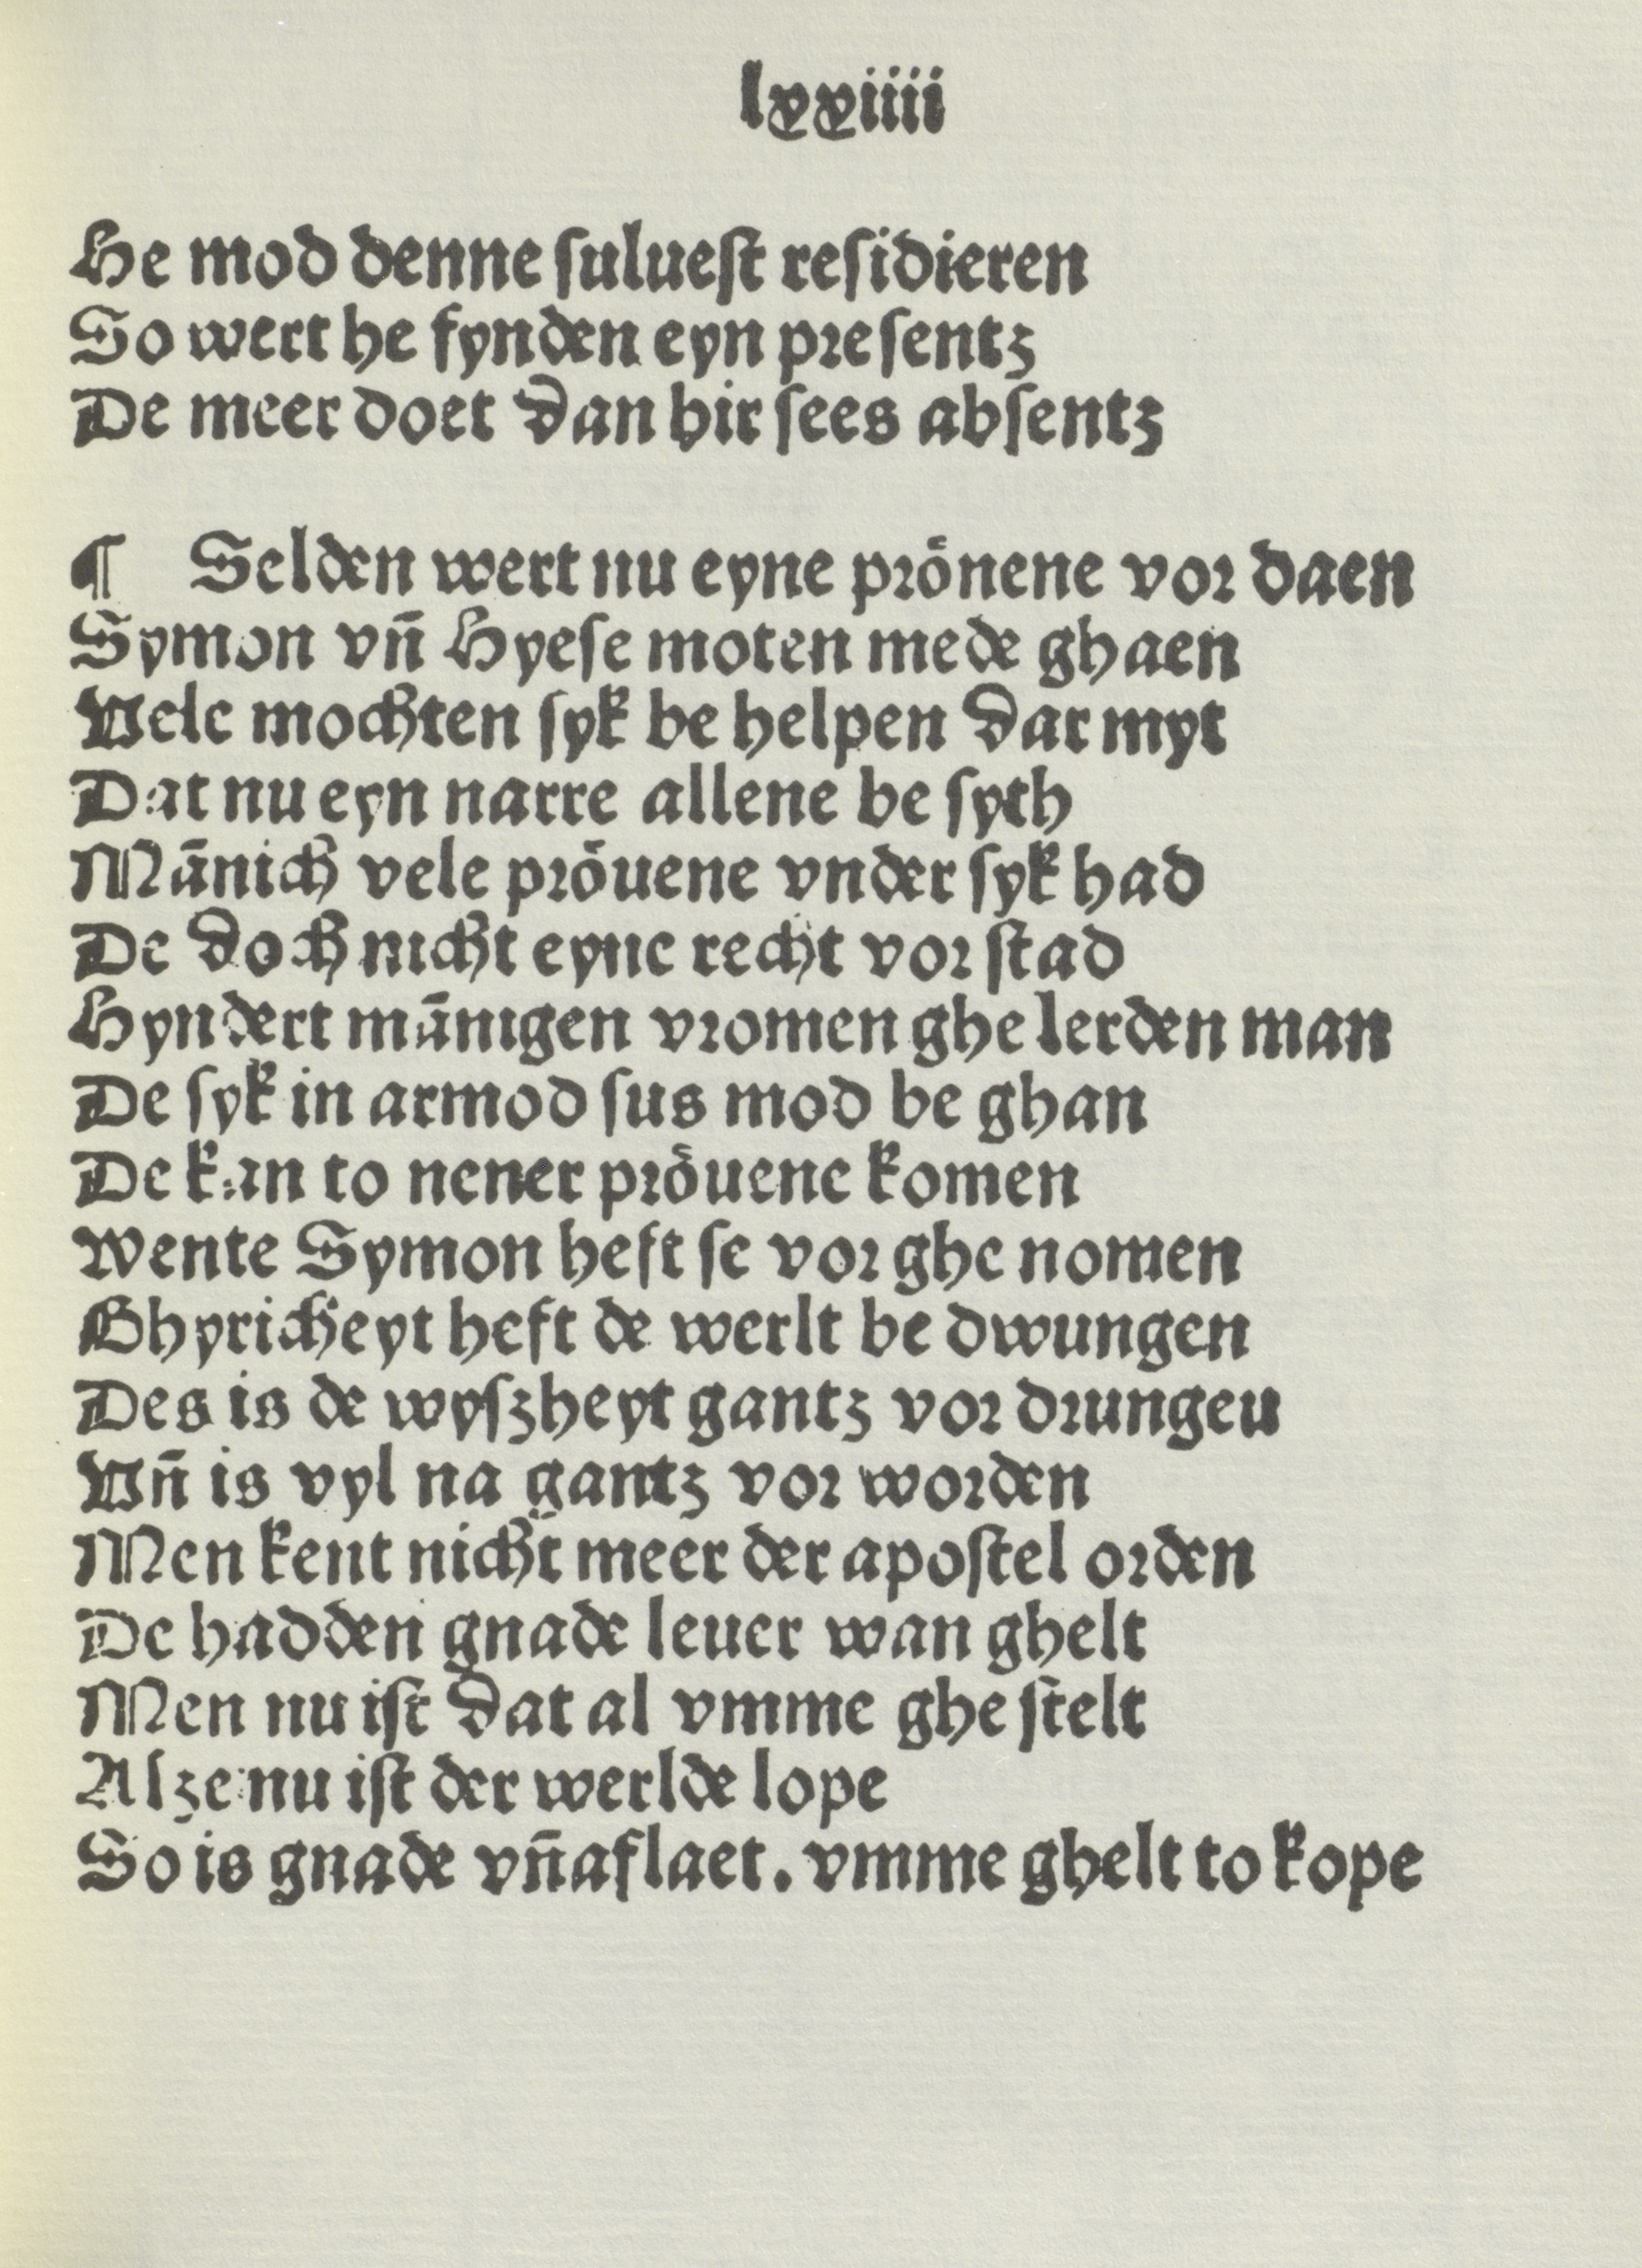 lxxiiii
He mod denne ſulueſt reſidieren
So wert he fynden eyn preſentz
De meer doet dan hir ſees abſentz
¶ Selden wert nu eyne prönene vor daen
Symon vn̄ Hyeſe moten mede ghaen
Vele mochten ſyk be helpen dar myt
Dat nu eyn narre allene be ſyth
Mānich vele pröuene vnder ſyk had
De doch nicht eyne recht vor ſtad
Hyndert mānigen vromen ghe lerden man
De ſyk in armod ſus mod be ghan
De kan to nener pröuene komen
Wente Symon heft ſe vor ghe nomen
Ghyricheyt heft de werlt be dwungen
Des is de wyſzheyt gantz vor drungeu
Vn̄ is vyl na gantz vor worden
Men kent nicht meer der apoſtel orden
De hadden gnade leuer wan ghelt
Men nu iſt dat al vmme ghe ſtelt
Alze nu iſt der werlde lope
So is gnade vn̄ aflaet. vmme ghelt to kope